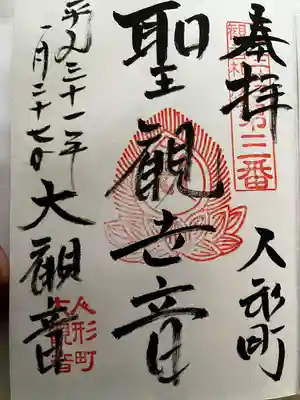 奉拝
人形町
三番
聖観世音
平成三十一年
一月二十七日
大観音
人形町
大観音